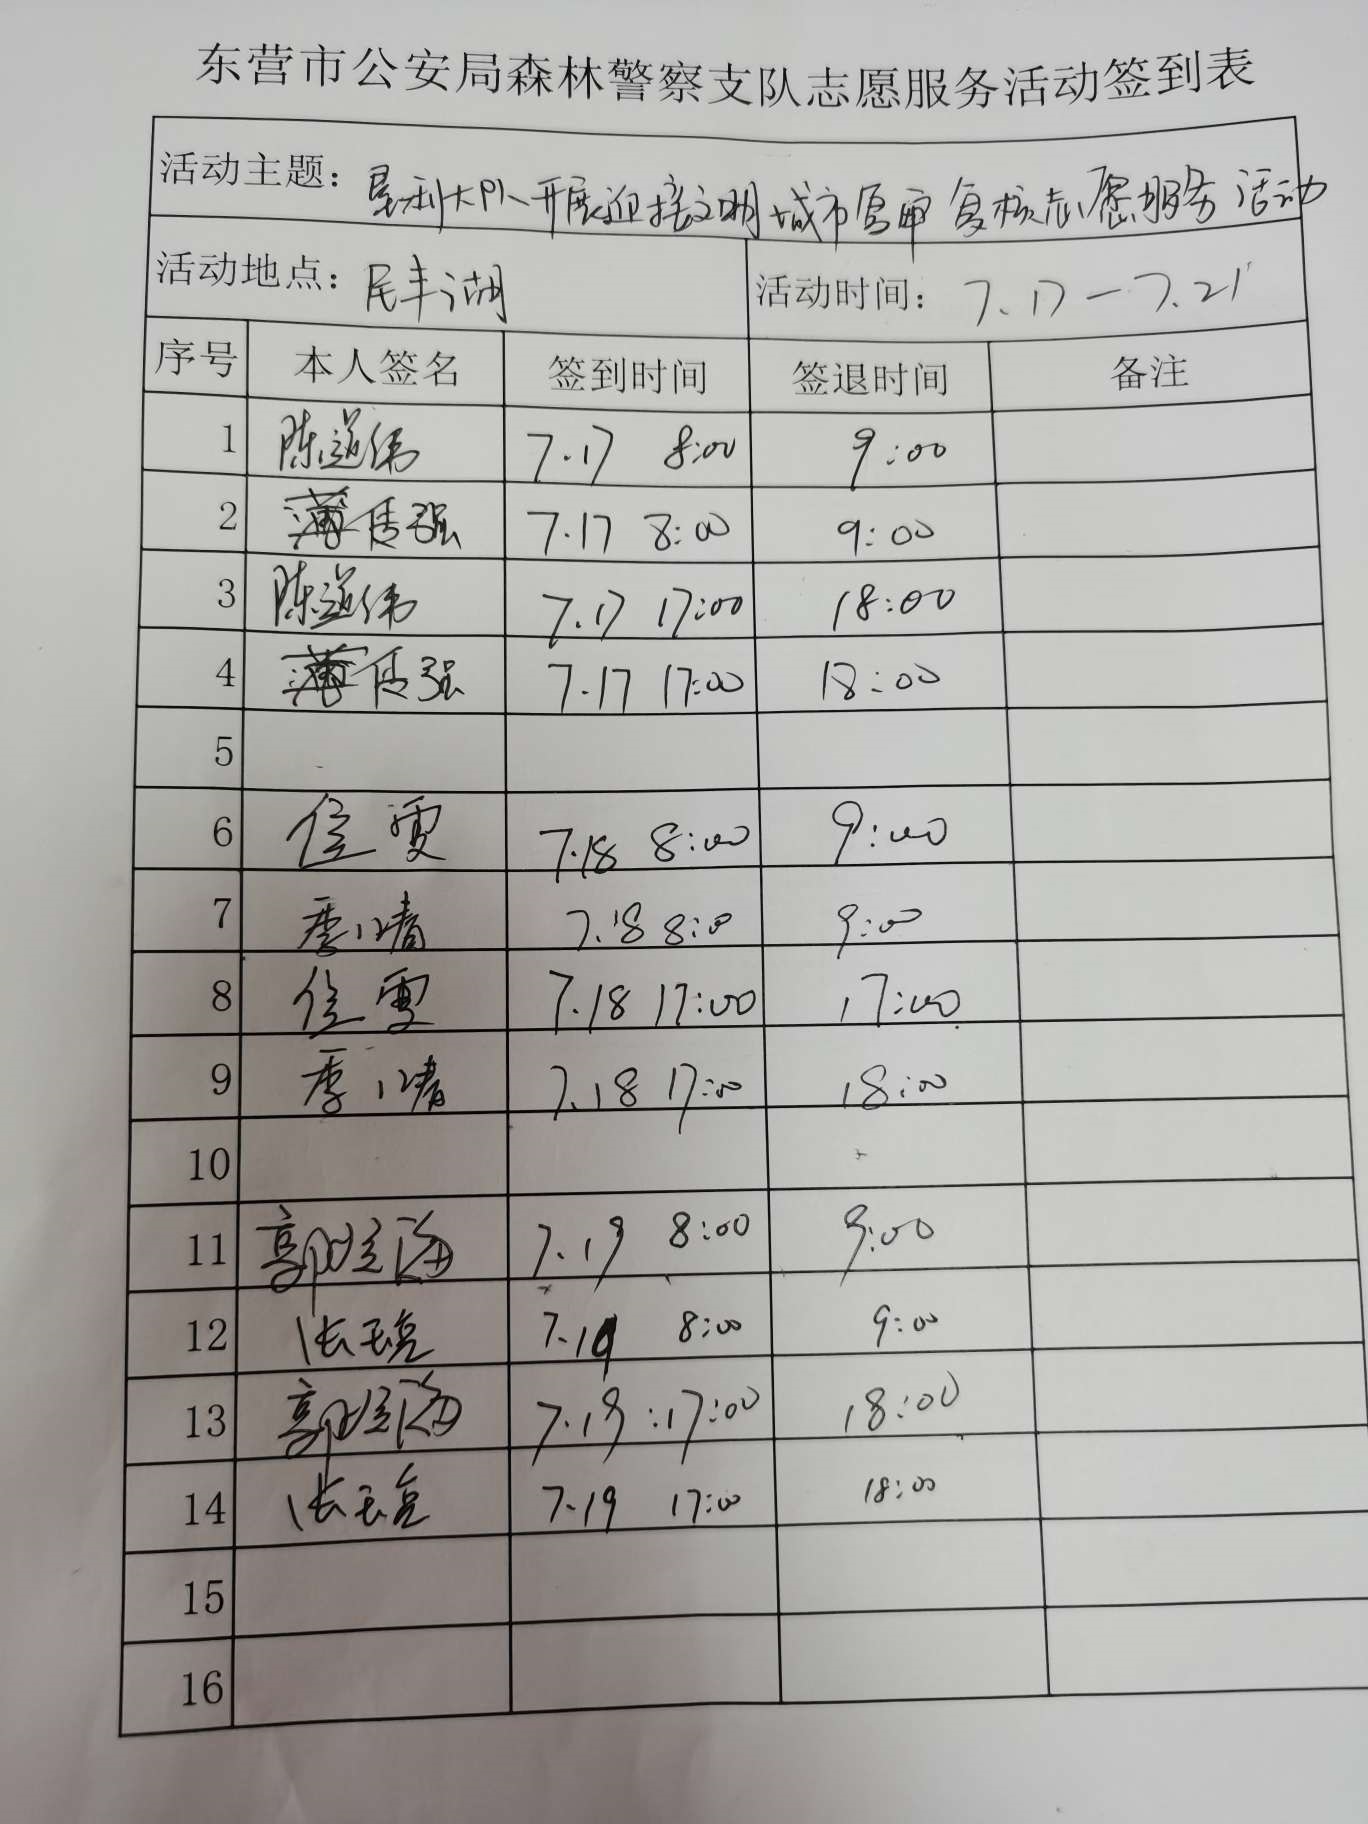 东营市公安局森林警察支队志愿服务活动签到表
活动主题：垦利大队开展迎接文明城市复审复核志愿服务活动
活动地点：民丰湖 活动时间：7.17—7.21
序号 本人签名 签到时间 签退时间 备注
1 陈道伟 7.17 8:00 9:00
2 薄传强 7.17 8:00 9:00
3 陈道伟 7.17 17:00 18:00
4 薄传强 7.17 17:00 18:00
5
6 信雯 7.18 8:00 9:00
7 季 7.18 8:00 9:00
8 信雯 7.18 17:00 17:00
9 季 7.18 17:00 18:00
10
11 郭 海 7.19 8:00 9:00
12 张玉亮 7.19 8:00 9:00
13 郭 海 7.19:17:00 18:00
14 张玉亮 7.19 17:00 18:00
15
16